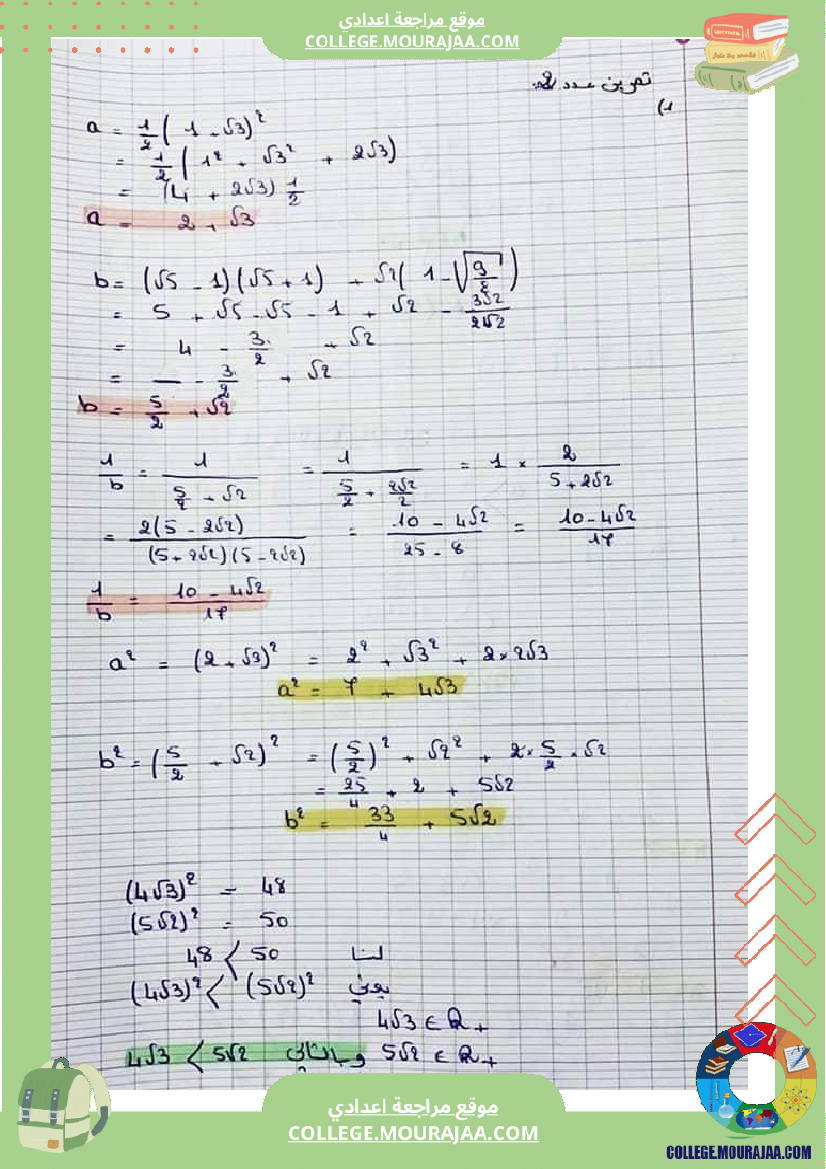 موقع مراجعة اعدادي
COLLEGE.MOURAJAA.COM
تمرين عدد 2
1)
a = 1/2 (1 + √3)²
= 1/2 (1² + √3² + 2√3)
= (4 + 2√3) 1/2
a = 2 + √3
b = (√5 - 1)(√5 + 1) + √2 (1 - √(9/8))
= 5 + √5 - √5 - 1 + √2 - 3√2/2√2
= 4 - 3/2 + √2
= - 3/2 + √2
b = 5/2 + √2
1/b = 1/(5/2 + √2) = 1/(5/2 + 2√2/2) = 1 × 2/(5 + 2√2)
= 2(5 - 2√2)/((5 + 2√2)(5 - 2√2)) = (10 - 4√2)/(25 - 8) = (10 - 4√2)/17
1/b = (10 - 4√2)/17
a² = (2 + √3)² = 2² + √3² + 2×2√3
a² = 7 + 4√3
b² = (5/2 + √2)² = (5/2)² + √2² + 2×5/2×√2
= 25/4 + 2 + 5√2
b² = 33/4 + 5√2
(4√3)² = 48
(5√2)² = 50
لنا 48 < 50
يعني (4√3)² < (5√2)²
4√3 ∈ R+
5√2 ∈ R+ وبالتالي 4√3 < 5√2
موقع مراجعة اعدادي
COLLEGE.MOURAJAA.COM
COLLEGE.MOURAJAA.COM